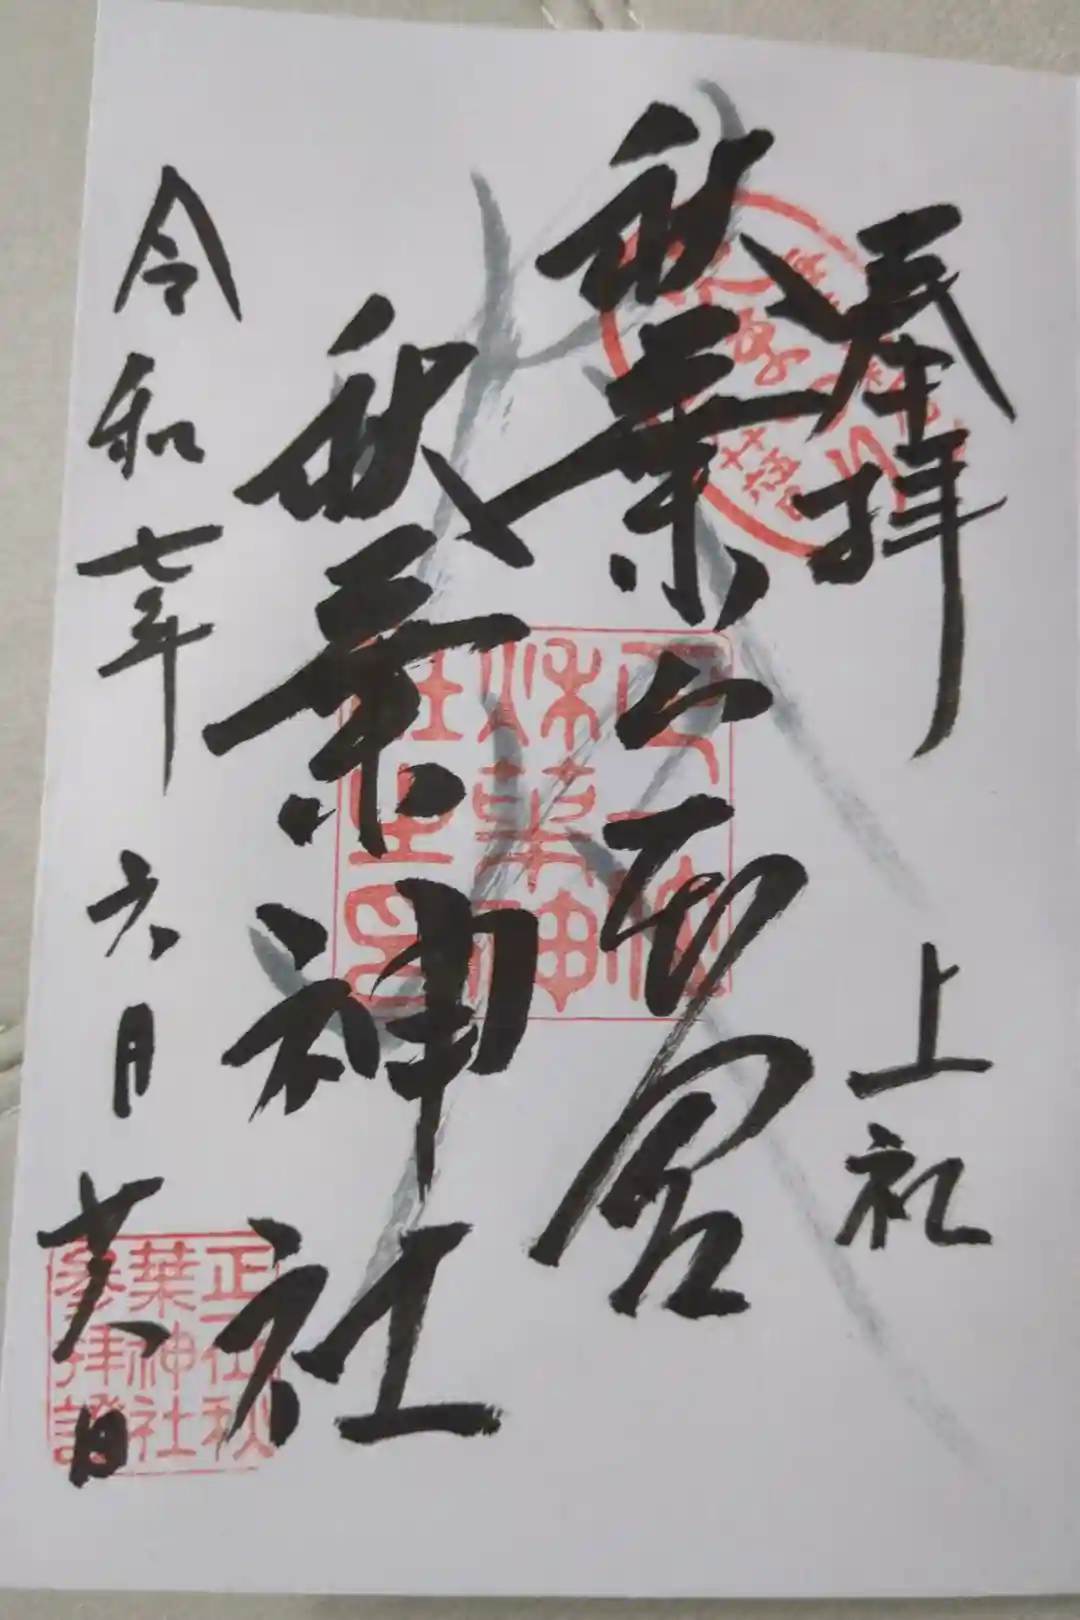 奉拝
上社
秋葉山本宮
秋葉神社
令和七年
六月
廿八日
正一位秋
葉神社
之印
正一位秋
葉神社
参拝證